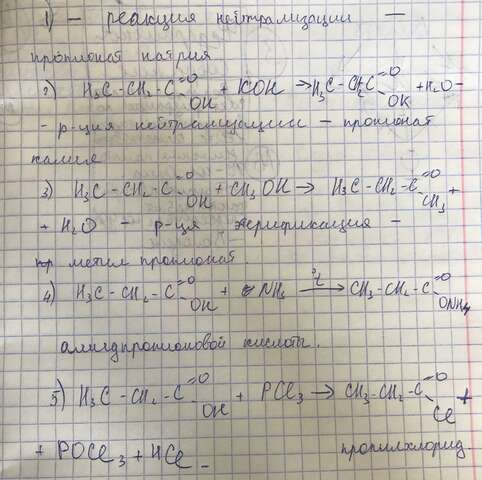 1) – реакция нейтрализации –
пропионат натрия
2) H₃C – CH₂ – C =O OH + KOH → H₃C – CH₂ C =O OK + H₂O –
- р-ция нейтрализации – пропионат
калия
3) H₃C – CH₂ – C =O OH + CH₃OH → H₃C – CH₂ – C =O CH₃ +
+ H₂O – р-ция этерификация –
метил пропионат.
4) H₃C – CH₂ – C =O OH + NH₃ → CH₃ – CH₂ – C =O ONH₄
амидпропионовой кислоты.
5) H₃C – CH₂ – C =O OH + PCl₃ → CH₃ – CH₂ – C =O Cl +
+ POCl₃ + HCl – пропилхлорид